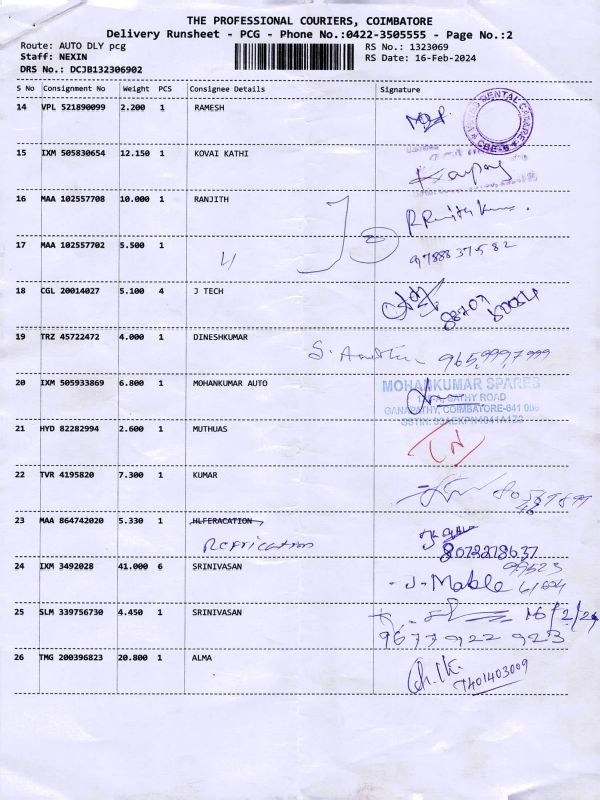 THE PROFESSIONAL COURIERS, COIMBATORE
Delivery Runsheet - PCG - Phone No.:0422-3505555 - Page No.:2
Route: AUTO DLY pcg RS No.: 1323069
Staff: NEXIN RS Date: 16-Feb-2024
DRS No.: DCJB132306902
S No Consignment No Weight PCS Consignee Details Signature
14 VPL 521890099 2.200 1 RAMESH
DENTAL
15 IXM 505830654 12.150 1 KOVAI KATHI
16 MAA 102557708 10.000 1 RANJITH
17 MAA 102557702 5.500 1
9788837582
18 CGL 20014027 5.100 4 J TECH
19 TRZ 45722472 4.000 1 DINESHKUMAR
965,999,7999
20 IXM 505933869 6.800 1 MOHANKUMAR AUTO
MOHANKUMAR SPARES
SATHY ROAD
GANAPATHY, COIMBATORE-641 006
21 HYD 82282994 2.600 1 MUTHUAS
22 TVR 4195820 7.300 1 KUMAR
23 MAA 864742020 5.330 1 HLFERACATION
Refrication
8072278637
24 IXM 3492028 41.000 6 SRINIVASAN
25 SLM 339756730 4.450 1 SRINIVASAN
16/2/24
9677922 923
26 TMG 200396823 20.800 1 ALMA
7401403009